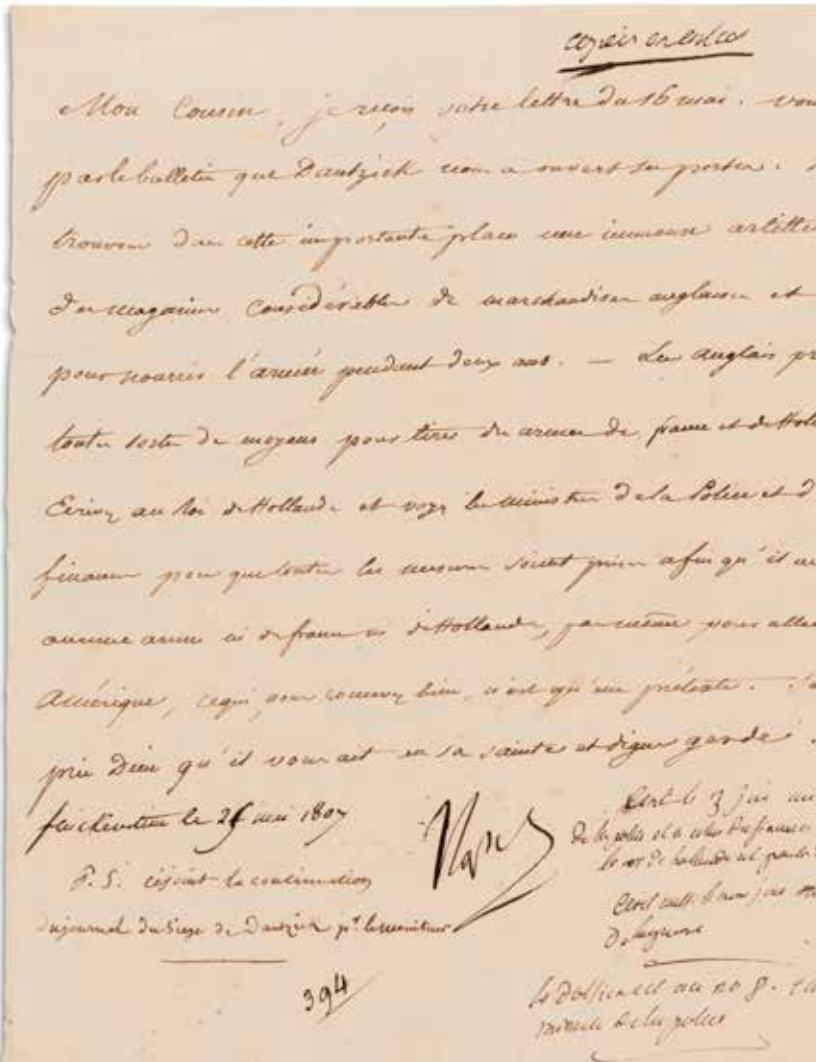 Mon Cousin, je reçois votre lettre du 16 mai. vou
par le bulletin que Dantzick nous a ouvert ses portes.
trouvons dans cette importante place une immense artille
des magasins considérables de marchandises anglaises et
pour nourrir l'armée pendant deux ans. — Les anglais pr
toute sorte de moyens pour tirer des armes de france et de Hol
Ecrivez au Roi de Hollande et voyez les ministres de la Police et d
finances pour que toutes les mesures soient prises afin qu'il ne
aucune arme ni de france ni de Hollande, pas même pour aller
Amérique, ce qui, vous concevez bien, n'est qu'un prétexte.
prie Dieu qu'il vous ait en sa sainte et digne garde.
le 2 mai 1807
Nap
P.S. cijoint la continuation
du journal du Siege de Dantzick pr. le moniteur
394
Ecrit le 3 juin
de la police et à celui des finances
le roi de hollande est
Ecrit
De la guerre
le Dossier est au no 8.
ministre de la police